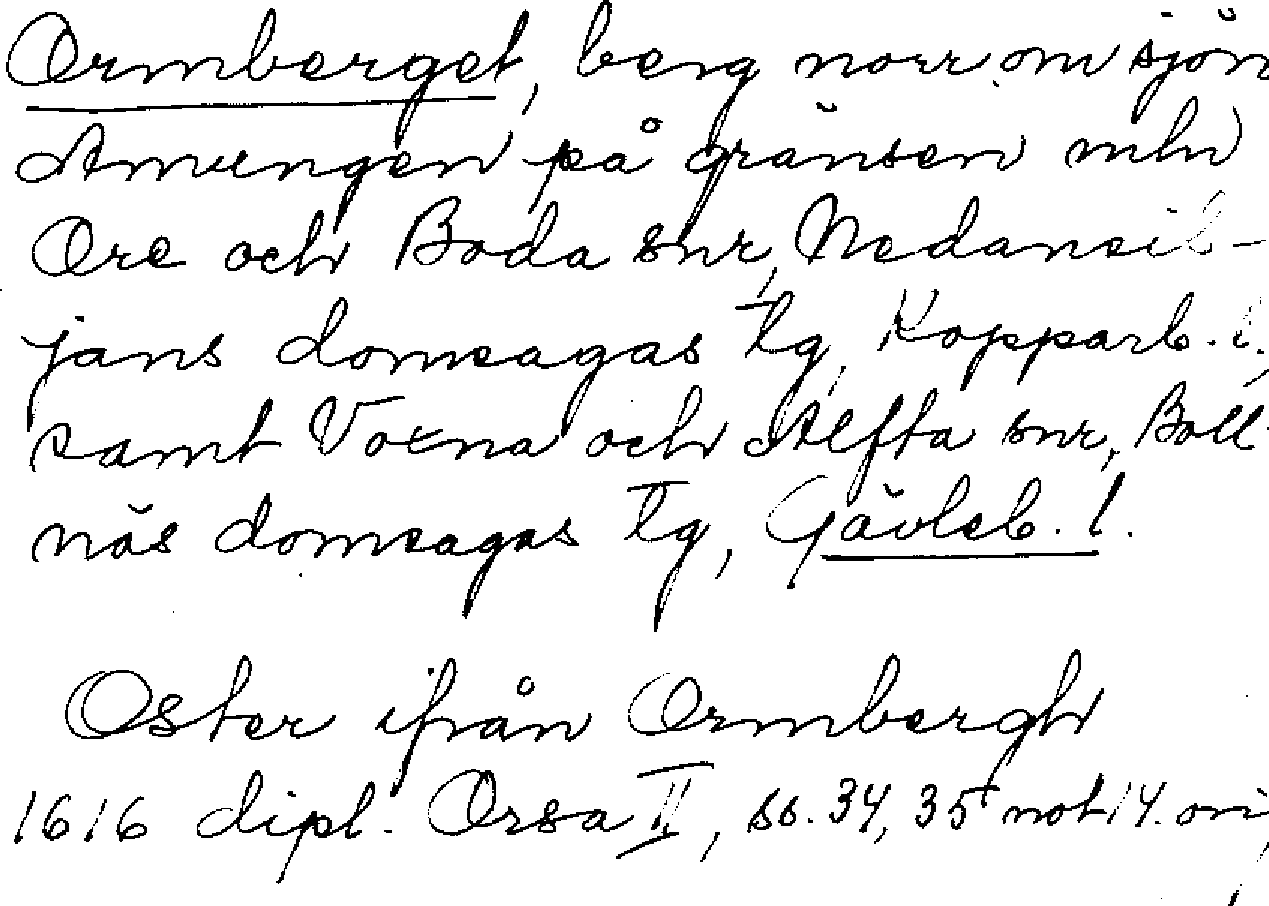 Ormberget, berg norr om sjön
Amungen på gränsen mln
Ore och Boda snr, Nedansil-
jans domsagas tg, Kopparb. l.,
samt Voxna och Alfta snr, Boll-
näs domsagas tg, Gävleb. l.
Oster ifrån Ormbergh
1616 dipl. Orsa II, ss. 34, 35 + not 14. ori